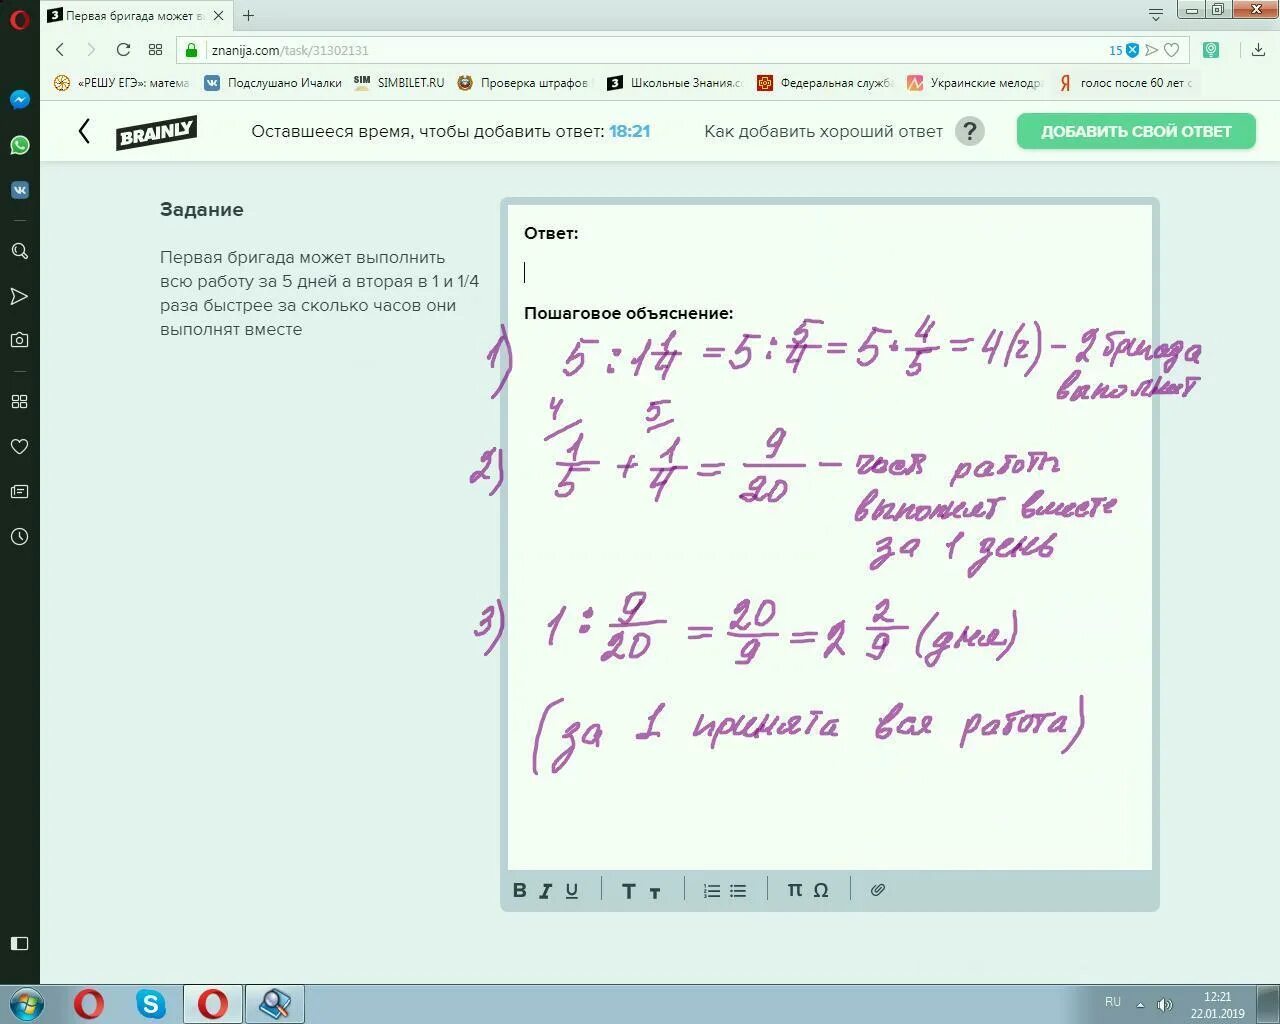 Первая бригада может в
znanija.com/task/31302131
15
«РЕШУ ЕГЭ»: матема
Подслушано Ичалки
SIM SIMBILET.RU
Проверка штрафов
Школьные Знания.co
Федеральная служба
Украинские мелодра
голос после 60 лет с
BRAINLY
Оставшееся время, чтобы добавить ответ: 18:21
Как добавить хороший ответ ?
ДОБАВИТЬ СВОЙ ОТВЕТ
Задание
Первая бригада может выполнить
всю работу за 5 дней а вторая в 1 и 1/4
раза быстрее за сколько часов они
выполнят вместе
Ответ:
Пошаговое объяснение:
1) 5 : 1 1/4 = 5 : 5/4 = 5 · 4/5 = 4 (г) - 2 бригада
выполнит
4/ 5/
2) 1/5 + 1/4 = 9/20 - часть работы
выполнят вместе
за 1 день
3) 1 : 9/20 = 20/9 = 2 2/9 (дня)
(за 1 принята вся работа)
B I U T т π Ω
RU
12:21
22.01.2019